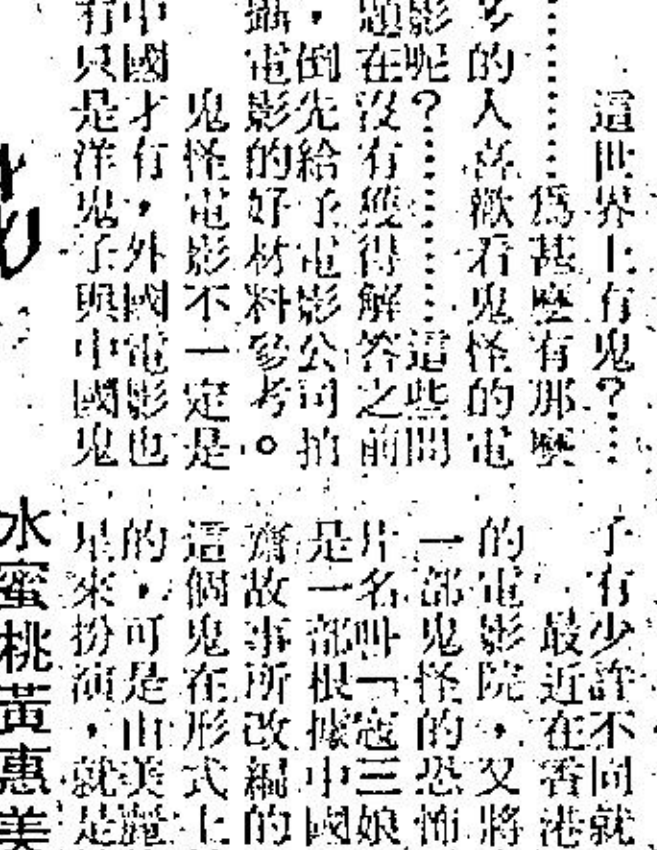 這世界上有鬼？⋯⋯
⋯⋯爲甚麼有那麼
多的人喜歡看鬼怪的電
影呢？⋯⋯這些問
題在沒有獲得解答之前
，倒先給了電影公司拍
攝電影的好材料參考。
鬼怪電影不一定是
中國才有，外國電影也
有只是洋鬼子與中國鬼
子有少許不同就
最近在香港
的電影院，又將
一部鬼怪的恐怖
片名叫「寇三娘
是一部根據中國
齋故事所改編的
這個鬼在形式上
的，可是由美麗
星來扮演，就是
水蜜桃黃惠美